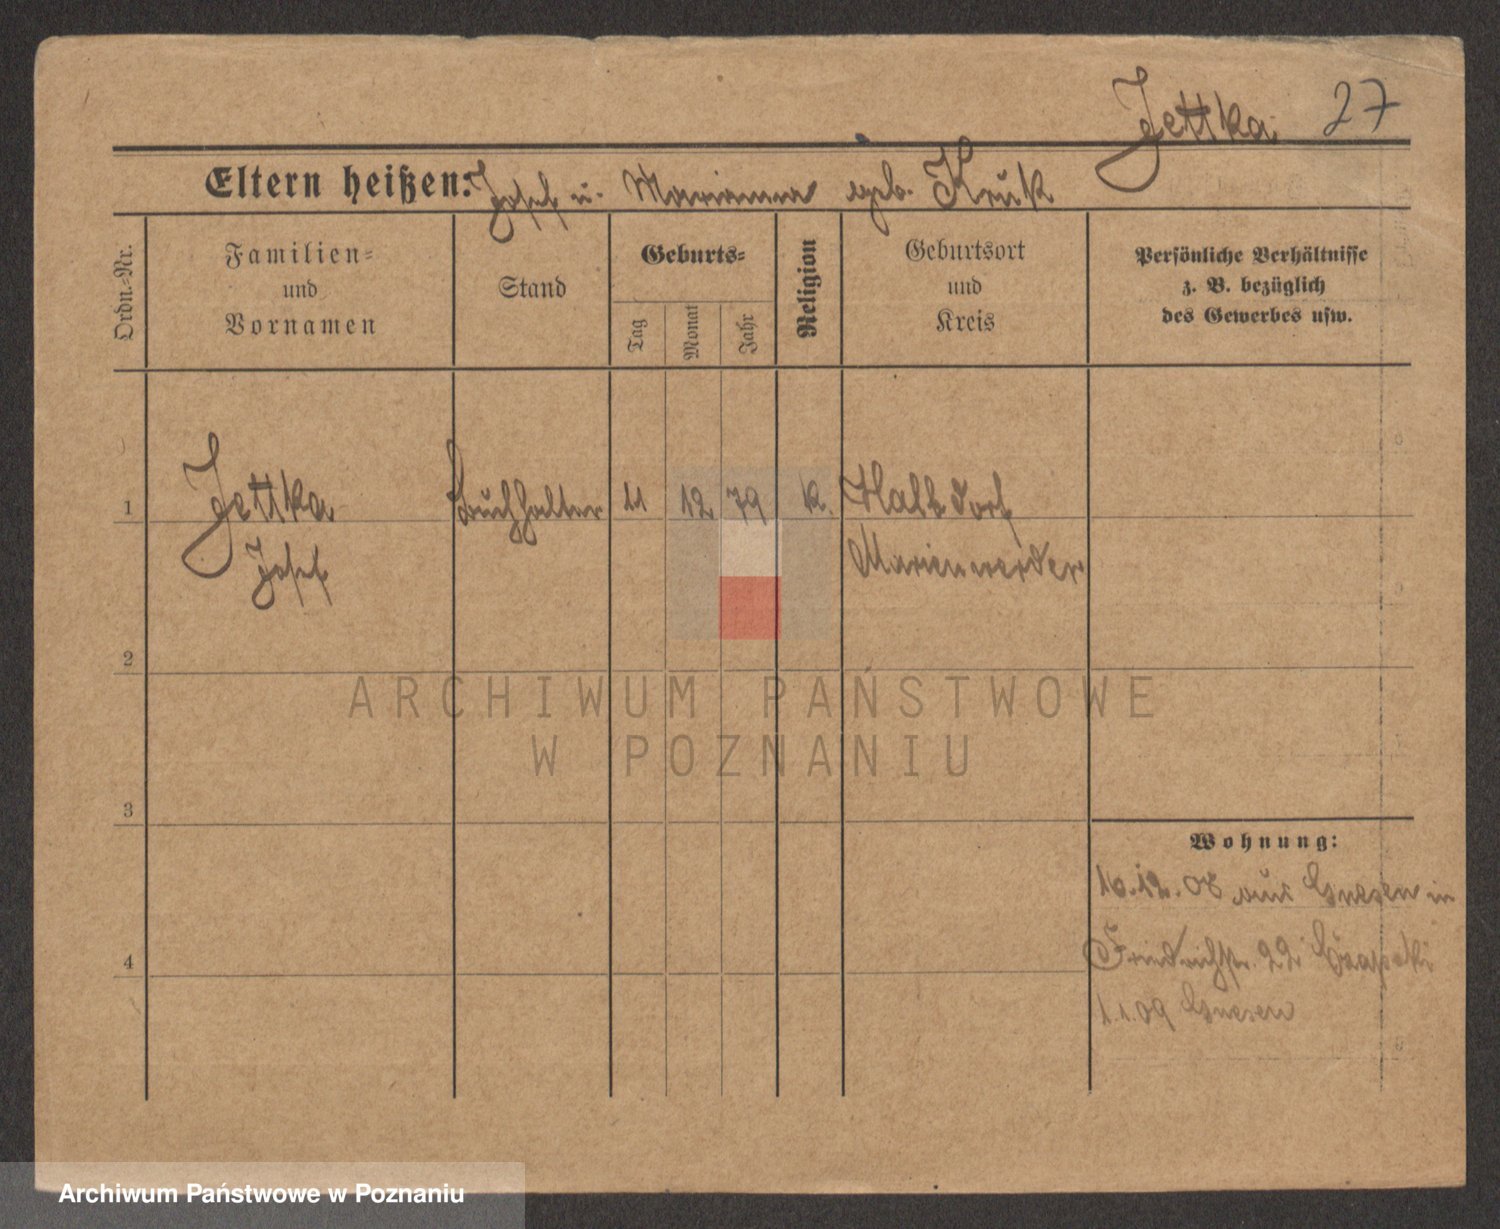 Jettka 27
Eltern heißen: Josef u. Marianna geb. Kruk
Ordn.-Nr.
Familien-
und
Vornamen
Stand
Geburts-
Tag
Monat
Jahr
Religion
Geburtsort
und
Kreis
Persönliche Verhältnisse
z. B. bezüglich
des Gewerbes usw.
1 Jettka Buchhalter 11 12 79 k. Halbdorf
Josef Marienwerder
2
ARCHIWUM PAŃSTWOWE
W POZNANIU
3
Wohnung:
16.12.08 aus Gnesen in
Friedrichstr. 22 Czapski
4
1.1.09 Gnesen
Archiwum Państwowe w Poznaniu